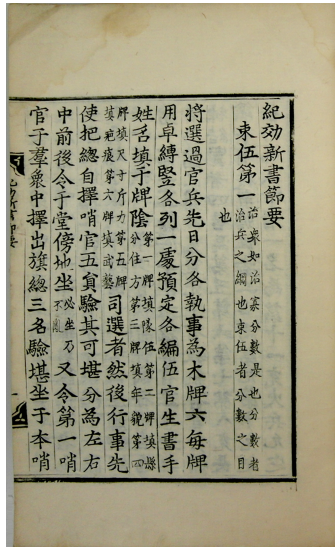 紀効新書節要
束伍第一 治衆如治寡分數是也分數者治兵之綱也束伍者分數之目也
將選過官兵先日分各執事為木牌六每牌
用卓縛竪各列一處預定各編伍官生書手
姓名填于牌陰 第一牌填隊伍第二牌填縣分住方第三牌填年貌第四
牌填尺寸斤力第五牌填疤痕第六牌填武藝 司選者然後行事先
使把總自擇哨官五負驗其可堪分為左右
中前後令于堂傍地坐 必坐乃不亂 又令第一哨
官于羣衆中擇出旗總三名驗堪坐于本哨